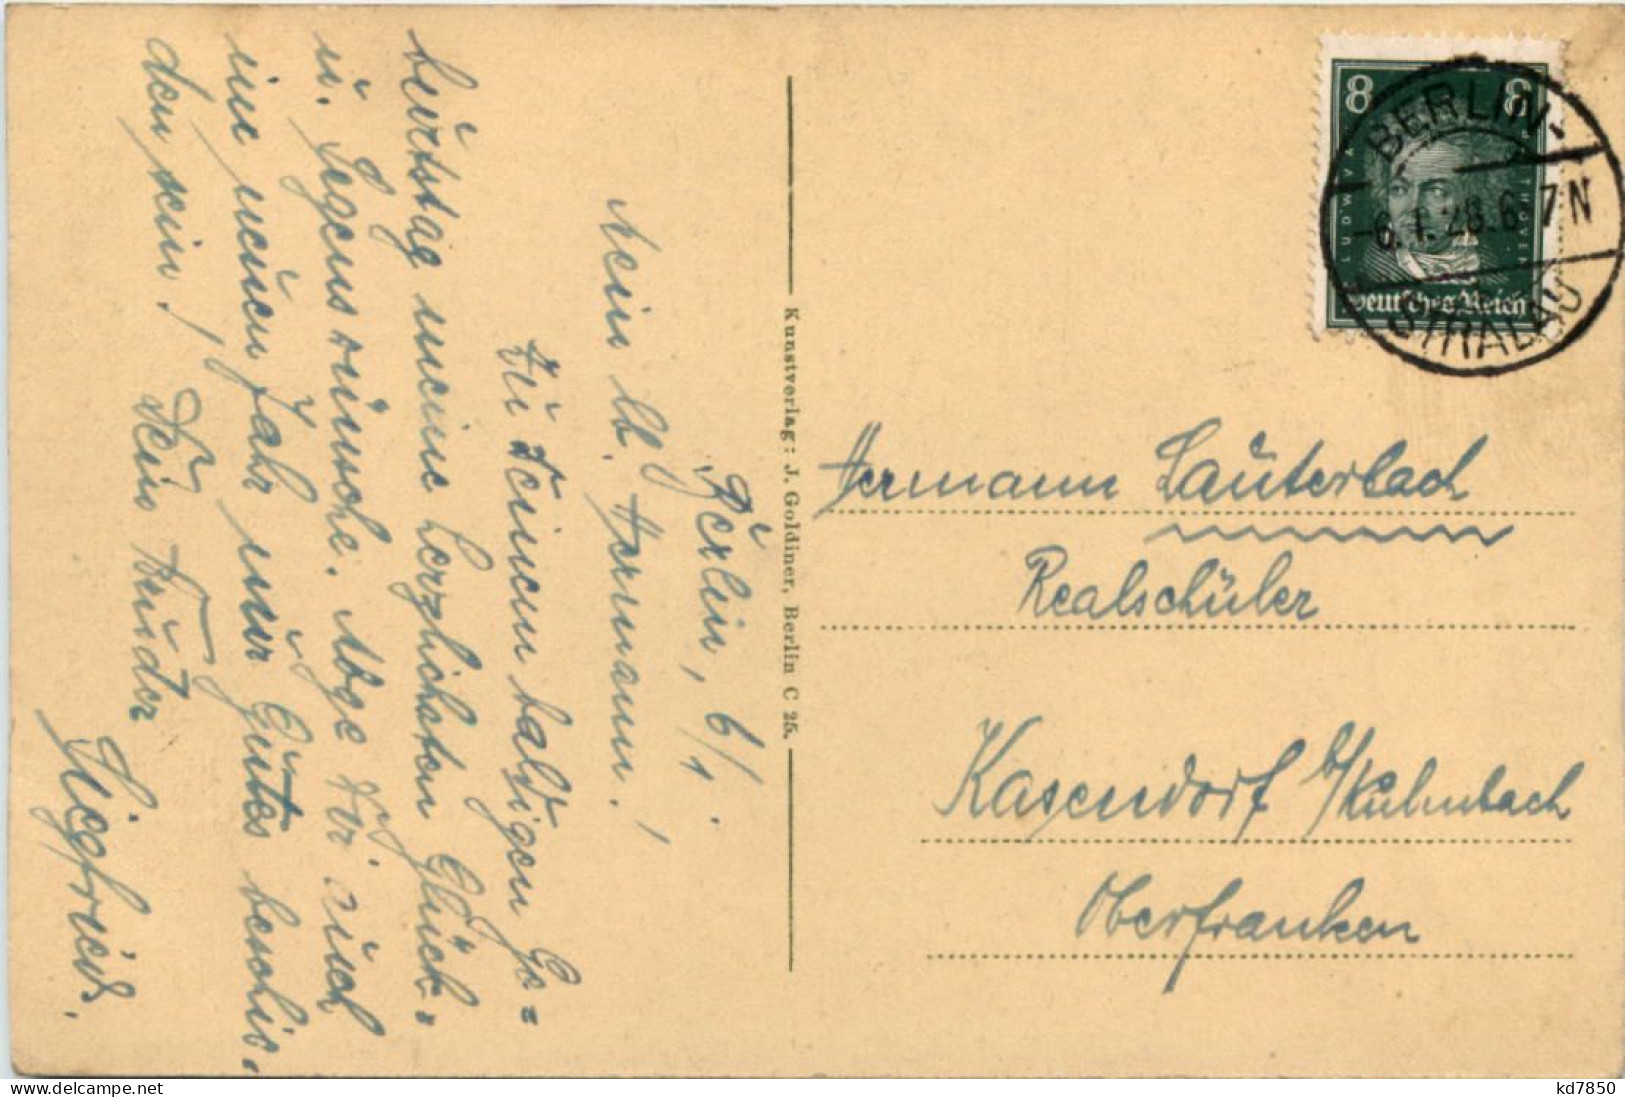 Berlin, 6/1.
Mein lb. Hermann!
Zu Deinem baldigen Ge=
burtstag meine herzlichsten Glück=
u. Segenswünsche. Möge Dir auch
im neuen Jahr nur Gutes beschie-
den sein! Dein Bruder
Siegfried.
Kunstverlag: J. Goldiner, Berlin C 25.
8 8
LUDW. V. BEETHOVEN
Deutsches Reich
BERLIN-
-6.1.28.6-7N
STRALAU
Hermann Lauterbach
Realschüler
Kasendorf b/Kulmbach
Oberfranken
www.delcampe.net
kd7850